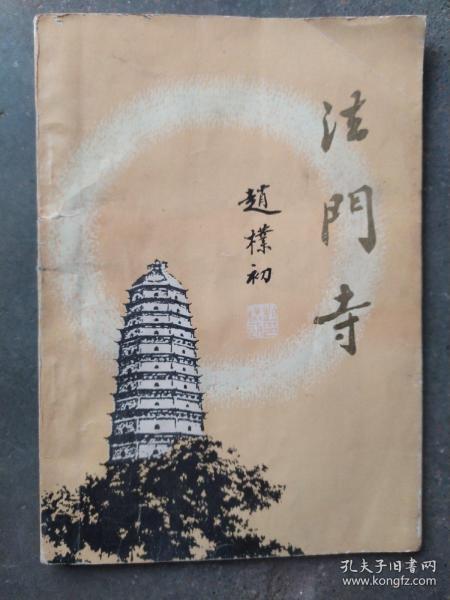 法門寺
趙樸初
孔夫子旧书网
www.kongfz.com